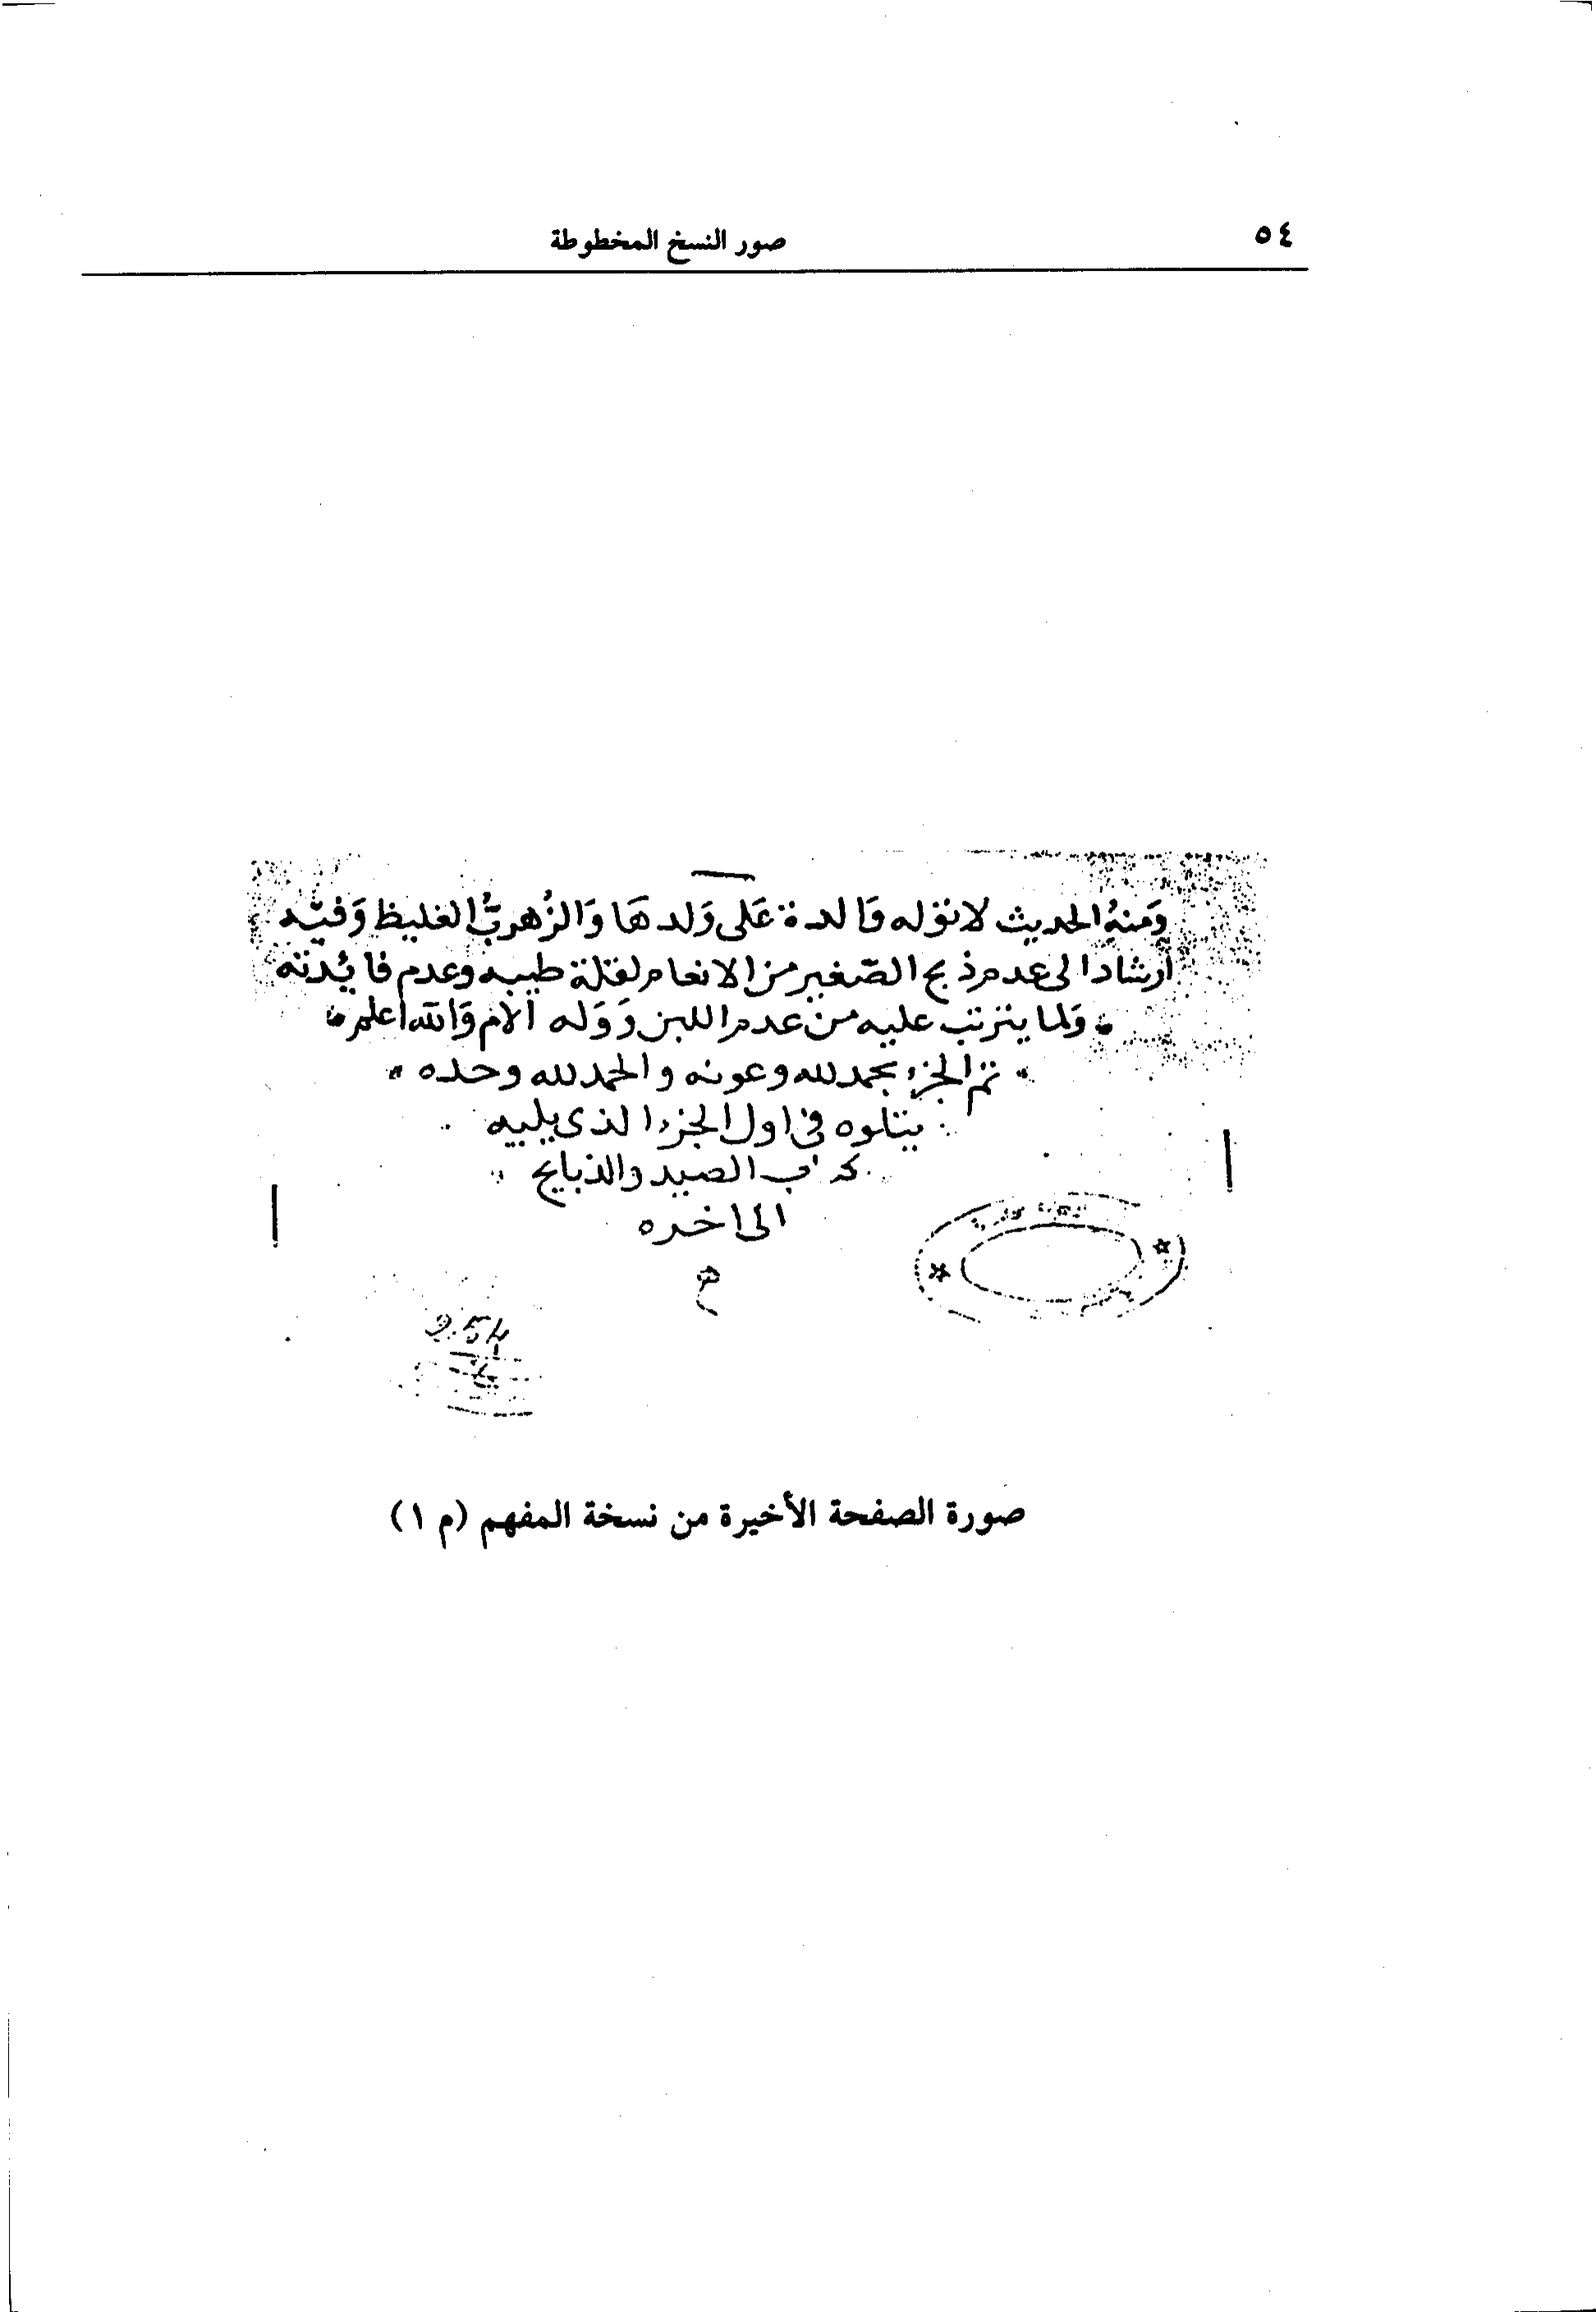 ٥٤
صور النسخ المخطوطة
وَمنهُ الحديث لا توَله وَالدة عَلى وَلدهَا وَالزُهربُّ الغليظ وَفيْه
ارشادا الى عدم ذبح الصّغير من الانعام لقلة طيبه وعدم فايُدته
وَلما يترتب عليه من عدم اللبن وَوَله الام وَالله اعلم
تم الجزء بحمد لله وعونه والحمد لله وحده
يتلوه في اول الجزء الذي يليه
كتاب الصيد والذبايح
الى اخره
م
صورة الصفحة الأخيرة من نسخة المفهم (م ١)